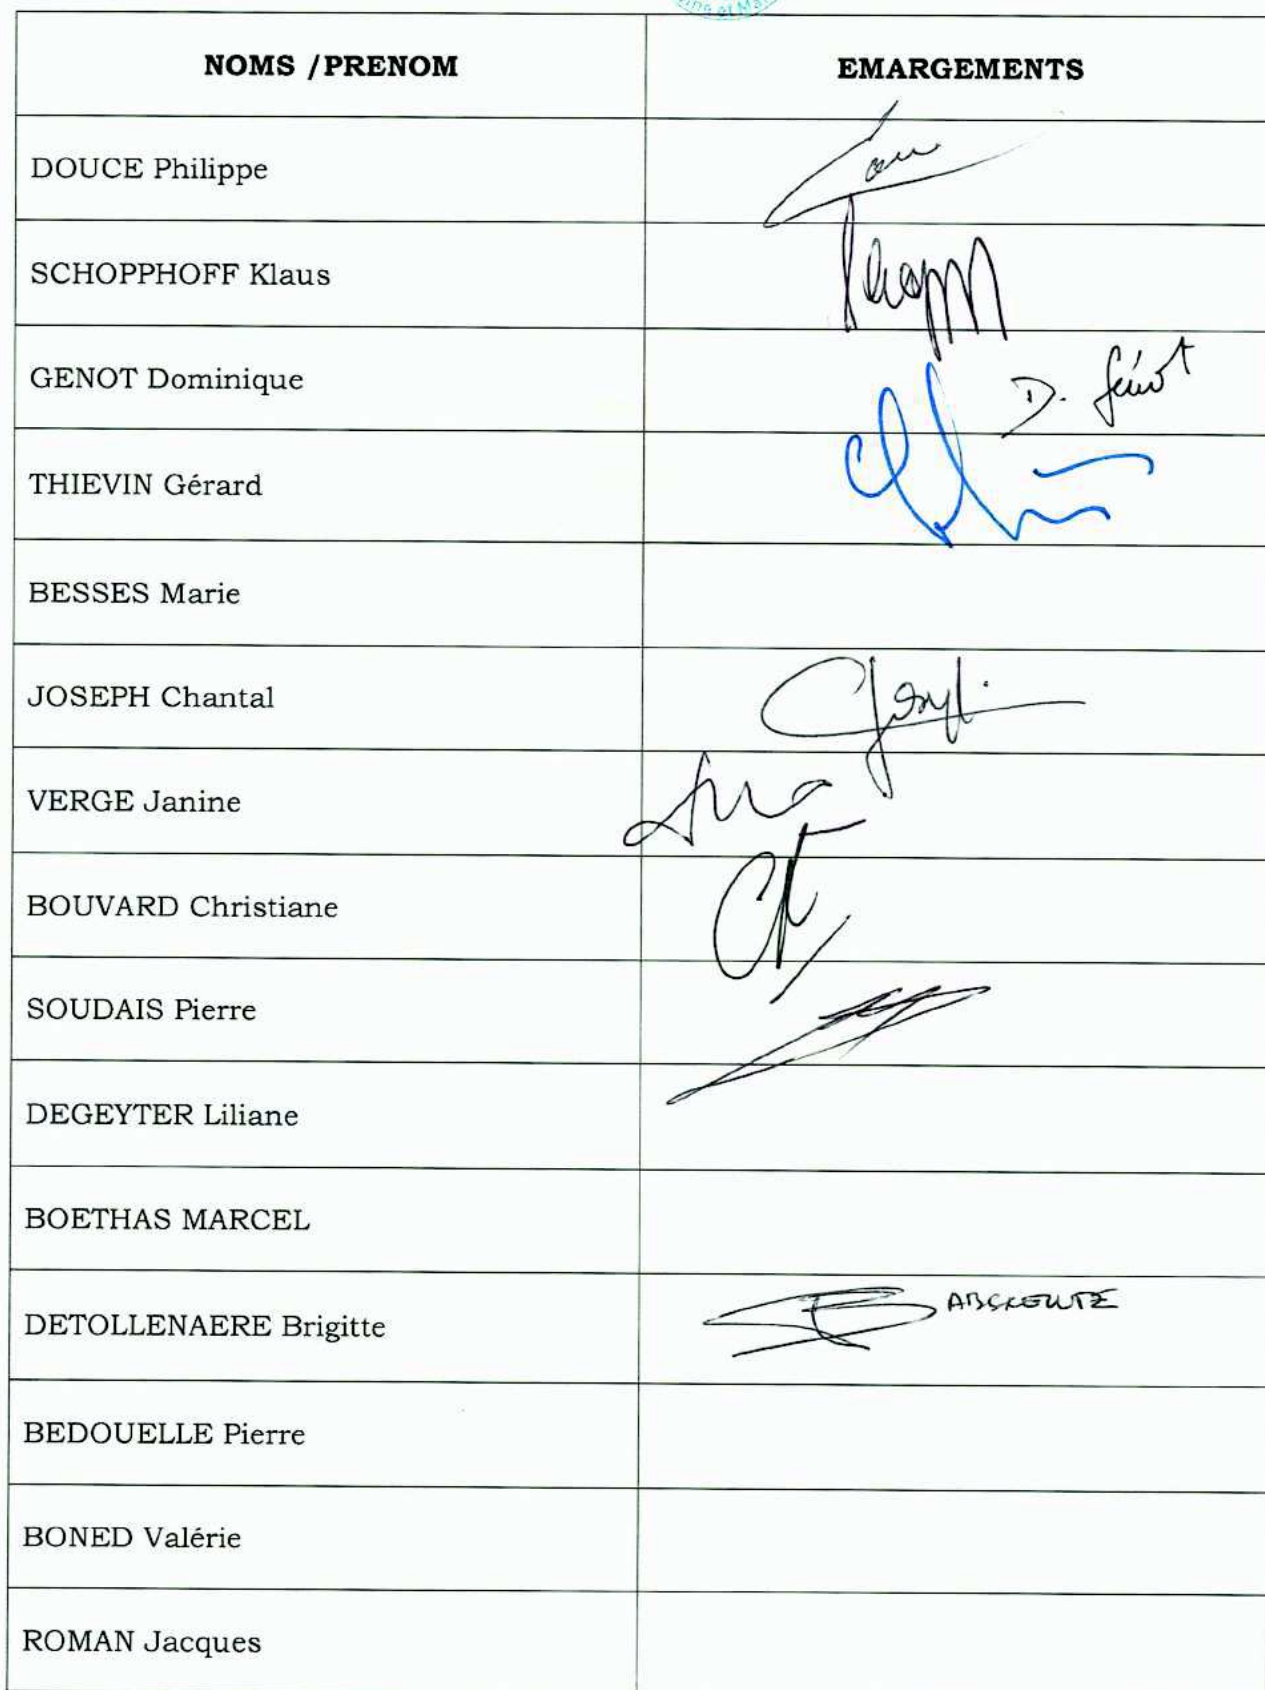 NOMS /PRENOM EMARGEMENTS
DOUCE Philippe
SCHOPPHOFF Klaus
GENOT Dominique D. Génot
THIEVIN Gérard
BESSES Marie
JOSEPH Chantal
VERGE Janine
BOUVARD Christiane
SOUDAIS Pierre
DEGEYTER Liliane
BOETHAS MARCEL
DETOLLENAERE Brigitte
BEDOUELLE Pierre
BONED Valérie
ROMAN Jacques